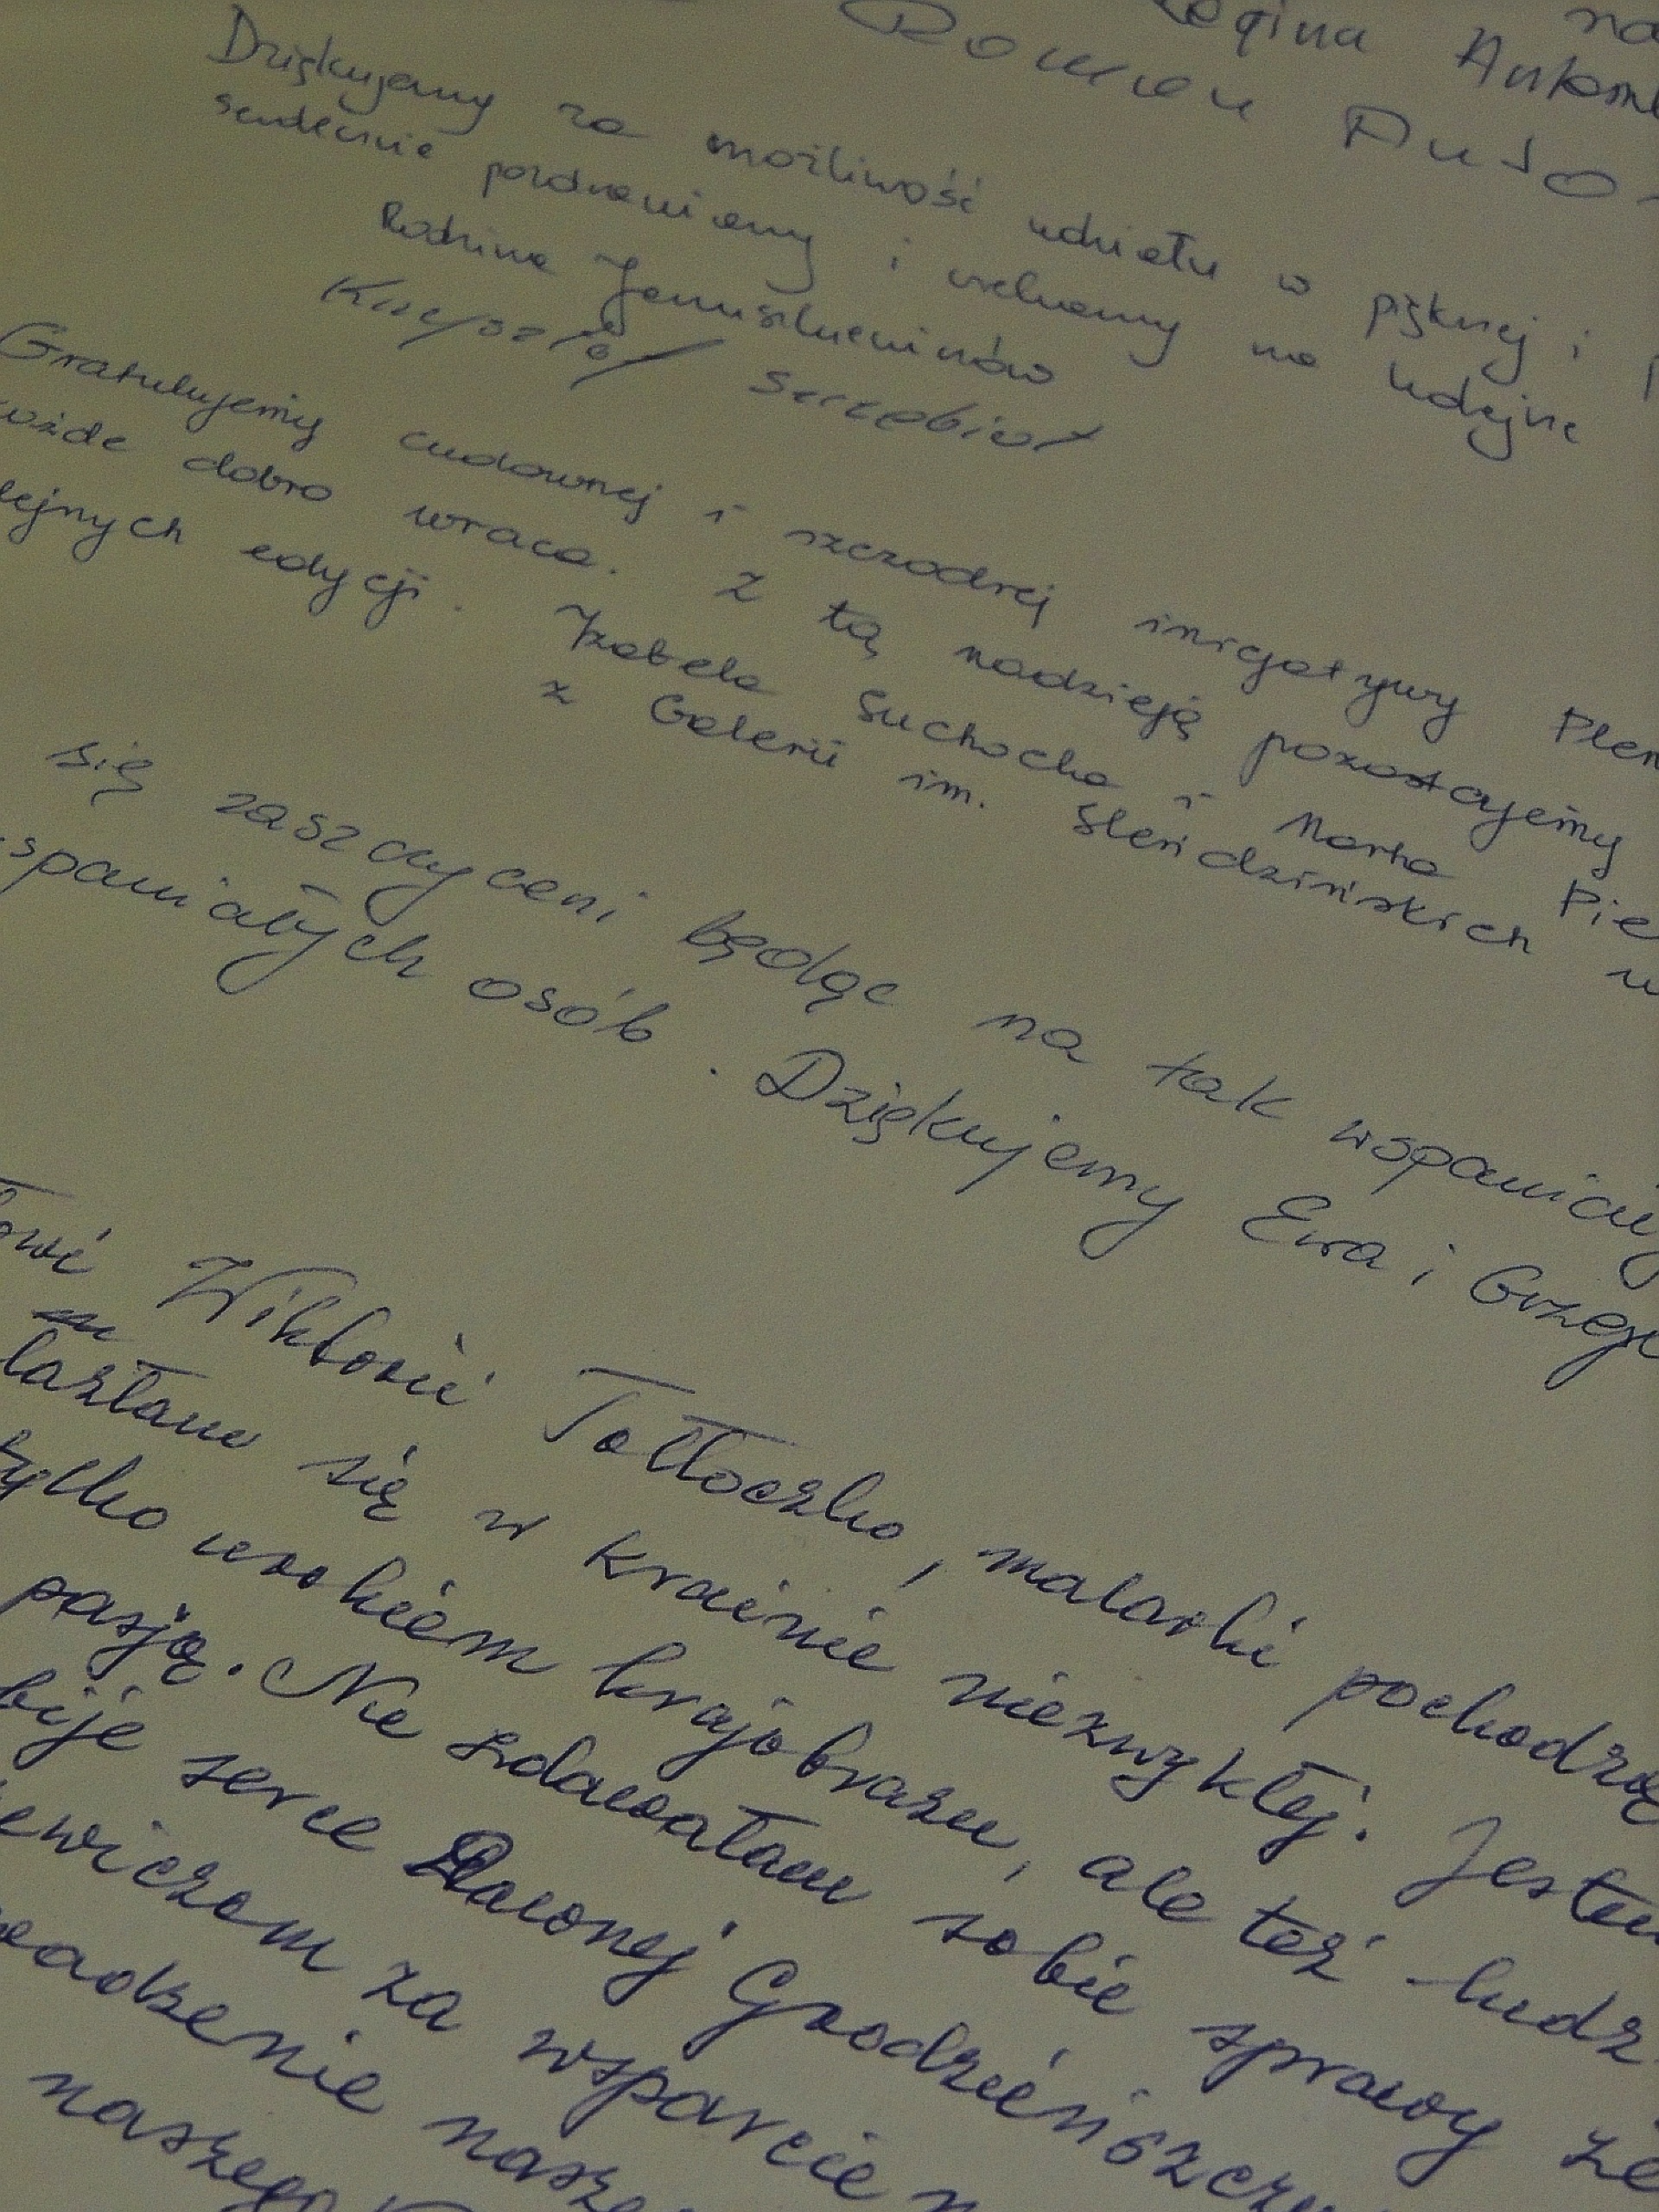 na
Regina Anton
Roman Anto
Dziękujemy za możliwość udziału w pięknej i
serdecznie pozdrawiamy i czekamy na kolejne
Rodzina Januszkiewiczów
Krzysztof
Gratulujemy cudownej i szczodrej inicjatywy Plen
każde dobro wraca. Z tą nadzieją pozostajemy
lejnych edycji. Izabela Suchocka i Marta Pie
z Galerii im. Sleńdzińskich w
się zaszczyceni będąc na tak wspaniały
spaniałych osób. Dziękujemy Ewa i Grzego
owi Wiktorii Tołłoczko, malarki pochodzą
lazłam się w krainie niezwykłej. Jestem
tylko urokiem krajobrazu, ale też ludz
pasją. Nie zdawałam sobie sprawy że
bije serce Dawnej Grodzieńszczy
ewiczom za wsparcie n
wadzenie nasze
naszego